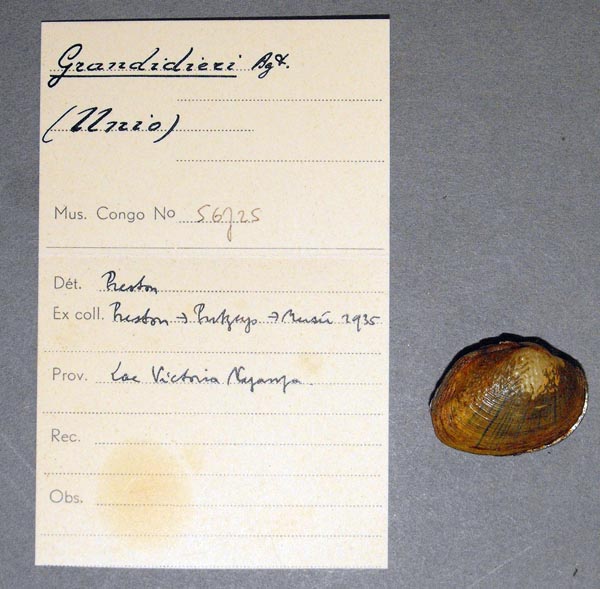 Grandidieri Bgt.
(Unio)
Mus. Congo No 56725
Dét. Preston
Ex coll. Preston → Putzeys → Musée 1935
Prov. Lac Victoria Nyanza.
Rec.
Obs.